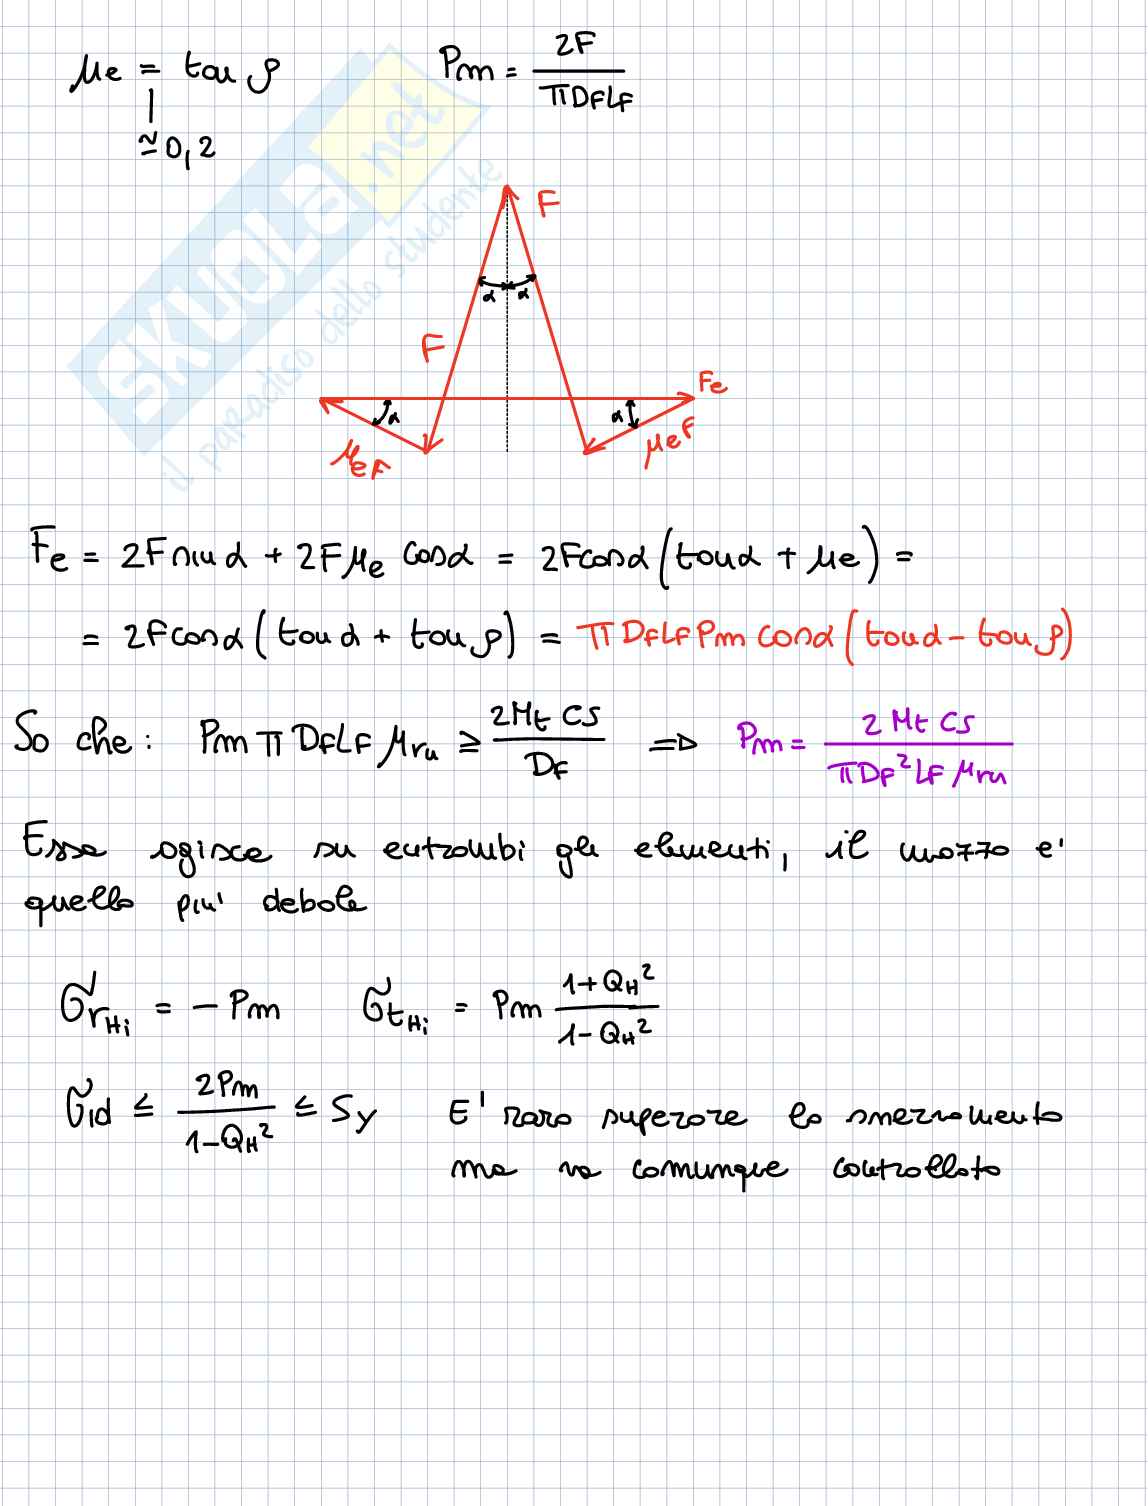 μe = tan ρ    Pm = 2F / πDFLF
≅ 0,2
SKUOLA.net
il paradiso dello studente
F
α α
F
Fe
α α
μeF μeF
Fe = 2F sin α + 2F μe cos α = 2F cos α (tan α + μe) =
= 2F cos α (tan α + tan ρ) = π DF LF Pm cos α (tan α - tan ρ)
So che: Pm π DF LF μru ≥ 2Mt CS / DF ⇒ Pm = 2 Mt CS / πDF² LF μru
Essa agisce su entrambi gli elementi, il mozzo e'
quello piu' debole
σrHi = - Pm    σtHi = Pm (1+QH²) / (1-QH²)
σid ≤ 2Pm / (1-QH²) ≤ Sy    E' raro superare lo snervamento
ma va comunque controllato